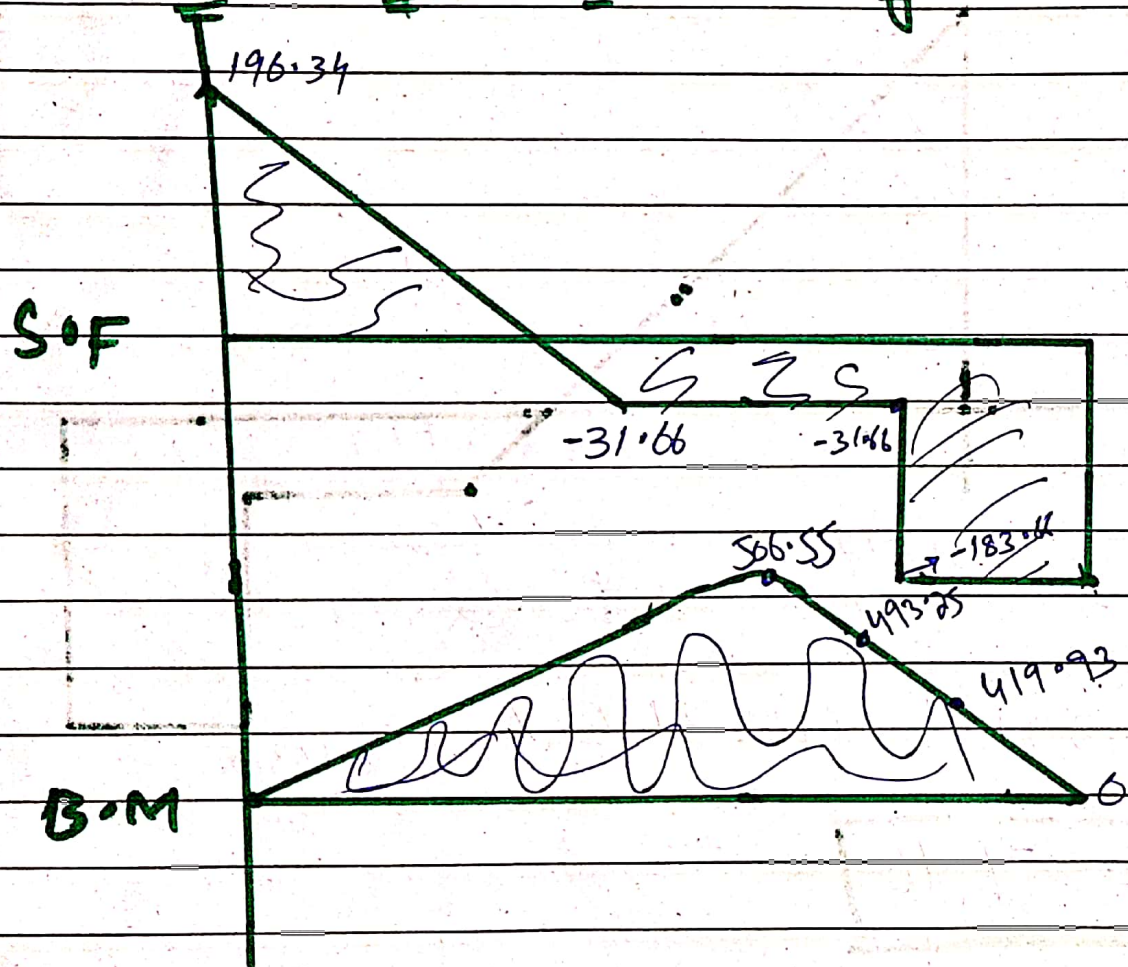 196.34
S.F
-31.66
-31.66
-183.66
506.55
493.25
419.93
B.M
0